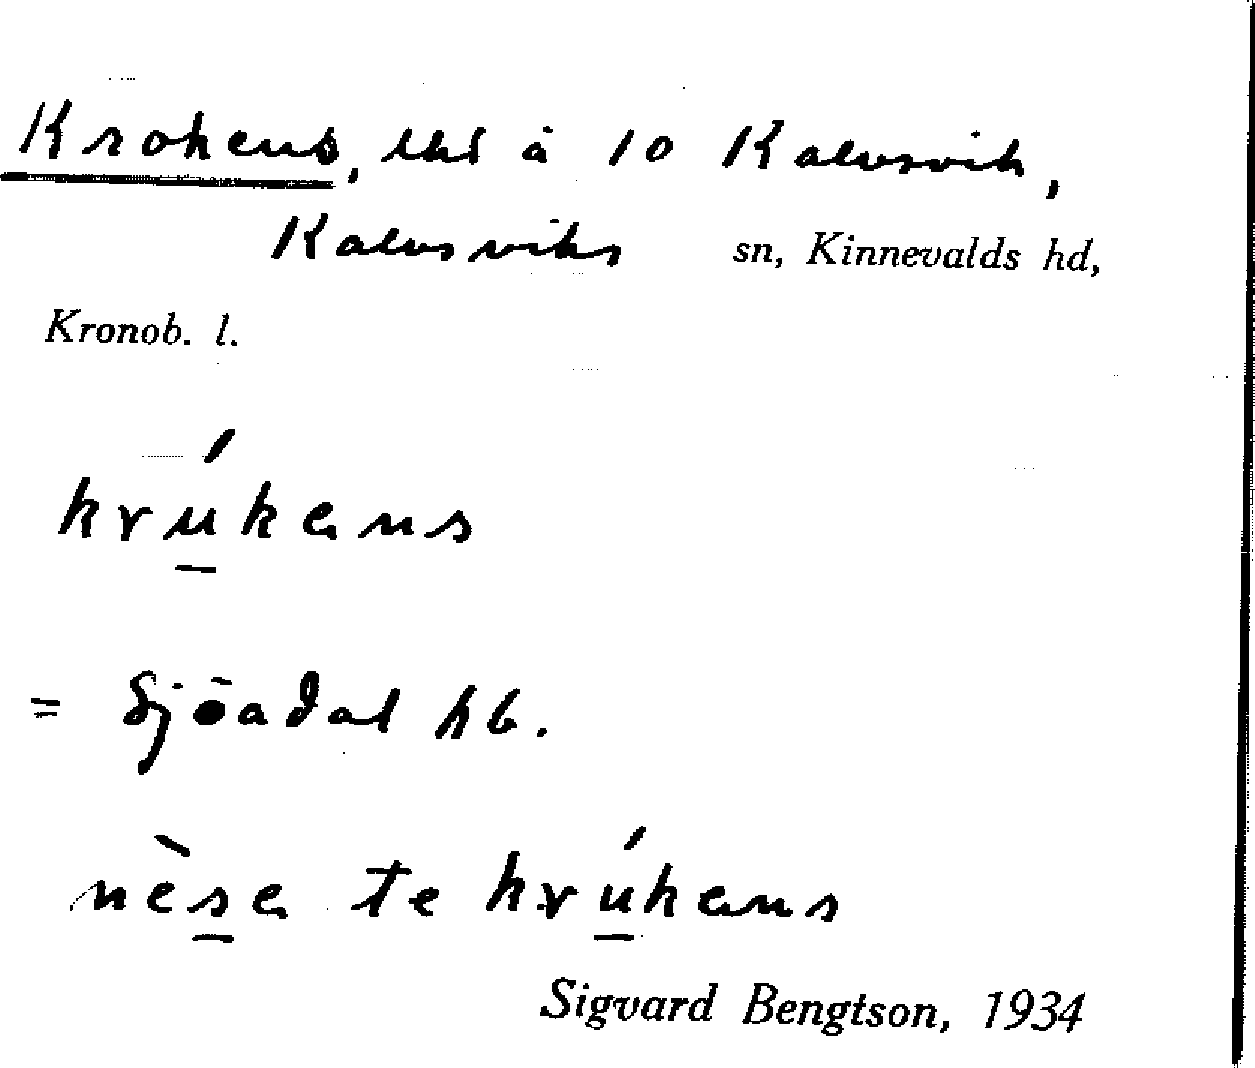 Krokens, lht å 10 Kalvsvik,
Kalvsviks sn, Kinnevalds hd,
Kronob. l.
krúkəns
= Sjöadal hb.
nèsə te krúkəns
Sigvard Bengtson, 1934